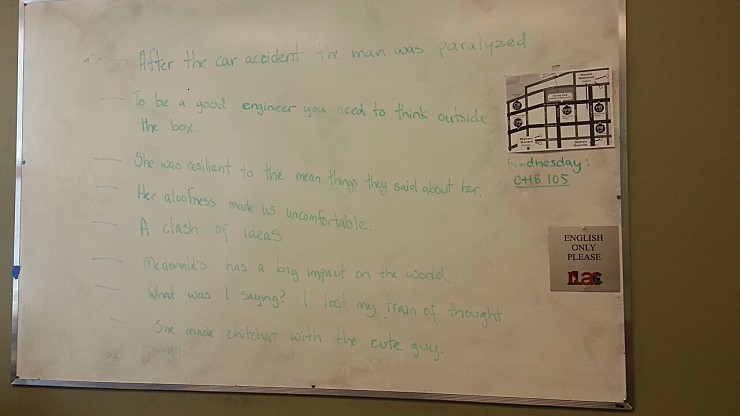 After the car accident the man was paralyzed
To be a good engineer you need to think outside
the box.
She was resilient to the mean things they said about her.
Her aloofness made us uncomfortable.
A clash of Ideas
Mcdonald's has a big impact on the world
What was I saying? I lost my Train of thought
She made chitchat with the cute guy.
dnesday:
CHB 105
ENGLISH
ONLY
PLEASE
ilac